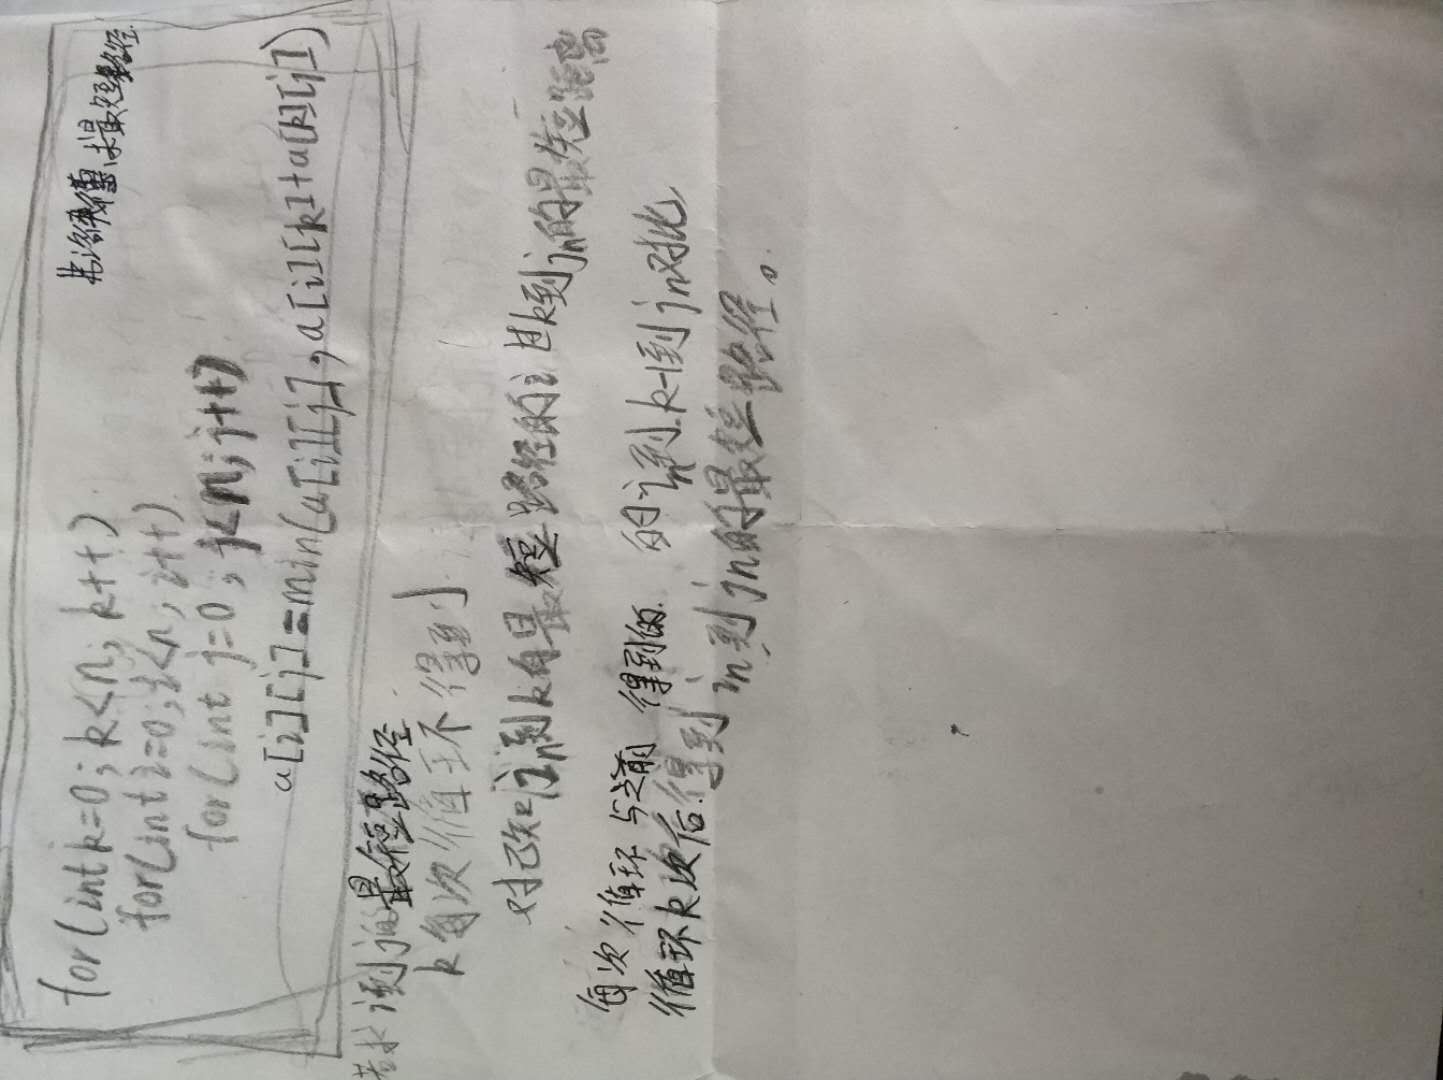 for(int k=0; k<n; k++)
弗洛伊德求最短路径
for(int i=0; i<n; i++)
for(int j=0; j<n; j++)
a[i][j]=min(a[i][j],a[i][k]+a[k][j])
若求i到j的最短路径
k每次循环得到
对已知in到k有最短路径的i过k到jn的最短距离
每次循环与之前得到的 的in到k-1到jn对比
循环k次后得到in到jn的最短路径。